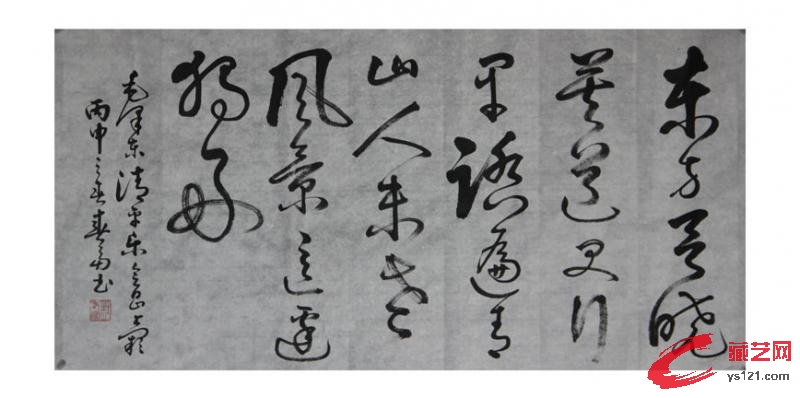 东方欲晓
莫道君行
早踏遍青
山人未老
风景这边
独好
毛泽东清平乐会昌
丙申之春春书
藏艺网
ys121.com